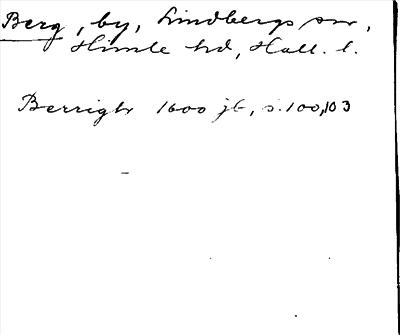 Berg, by, Lindbergs sn,
Himle hd, Hall. l.
Berrigh 1600 jb, s. 100, 103